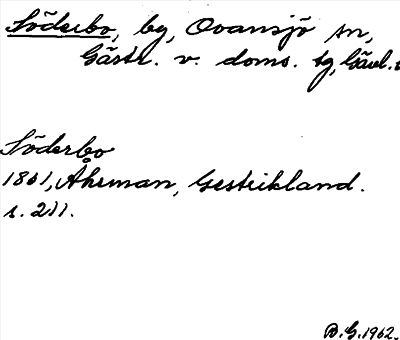 Söderbo, by, Ovansjö sn,
Gästr. v. doms. tg, Gävl.
Söderbo
1861, Åkerman, Gestrikland.
s. 211.
D.G. 1962.